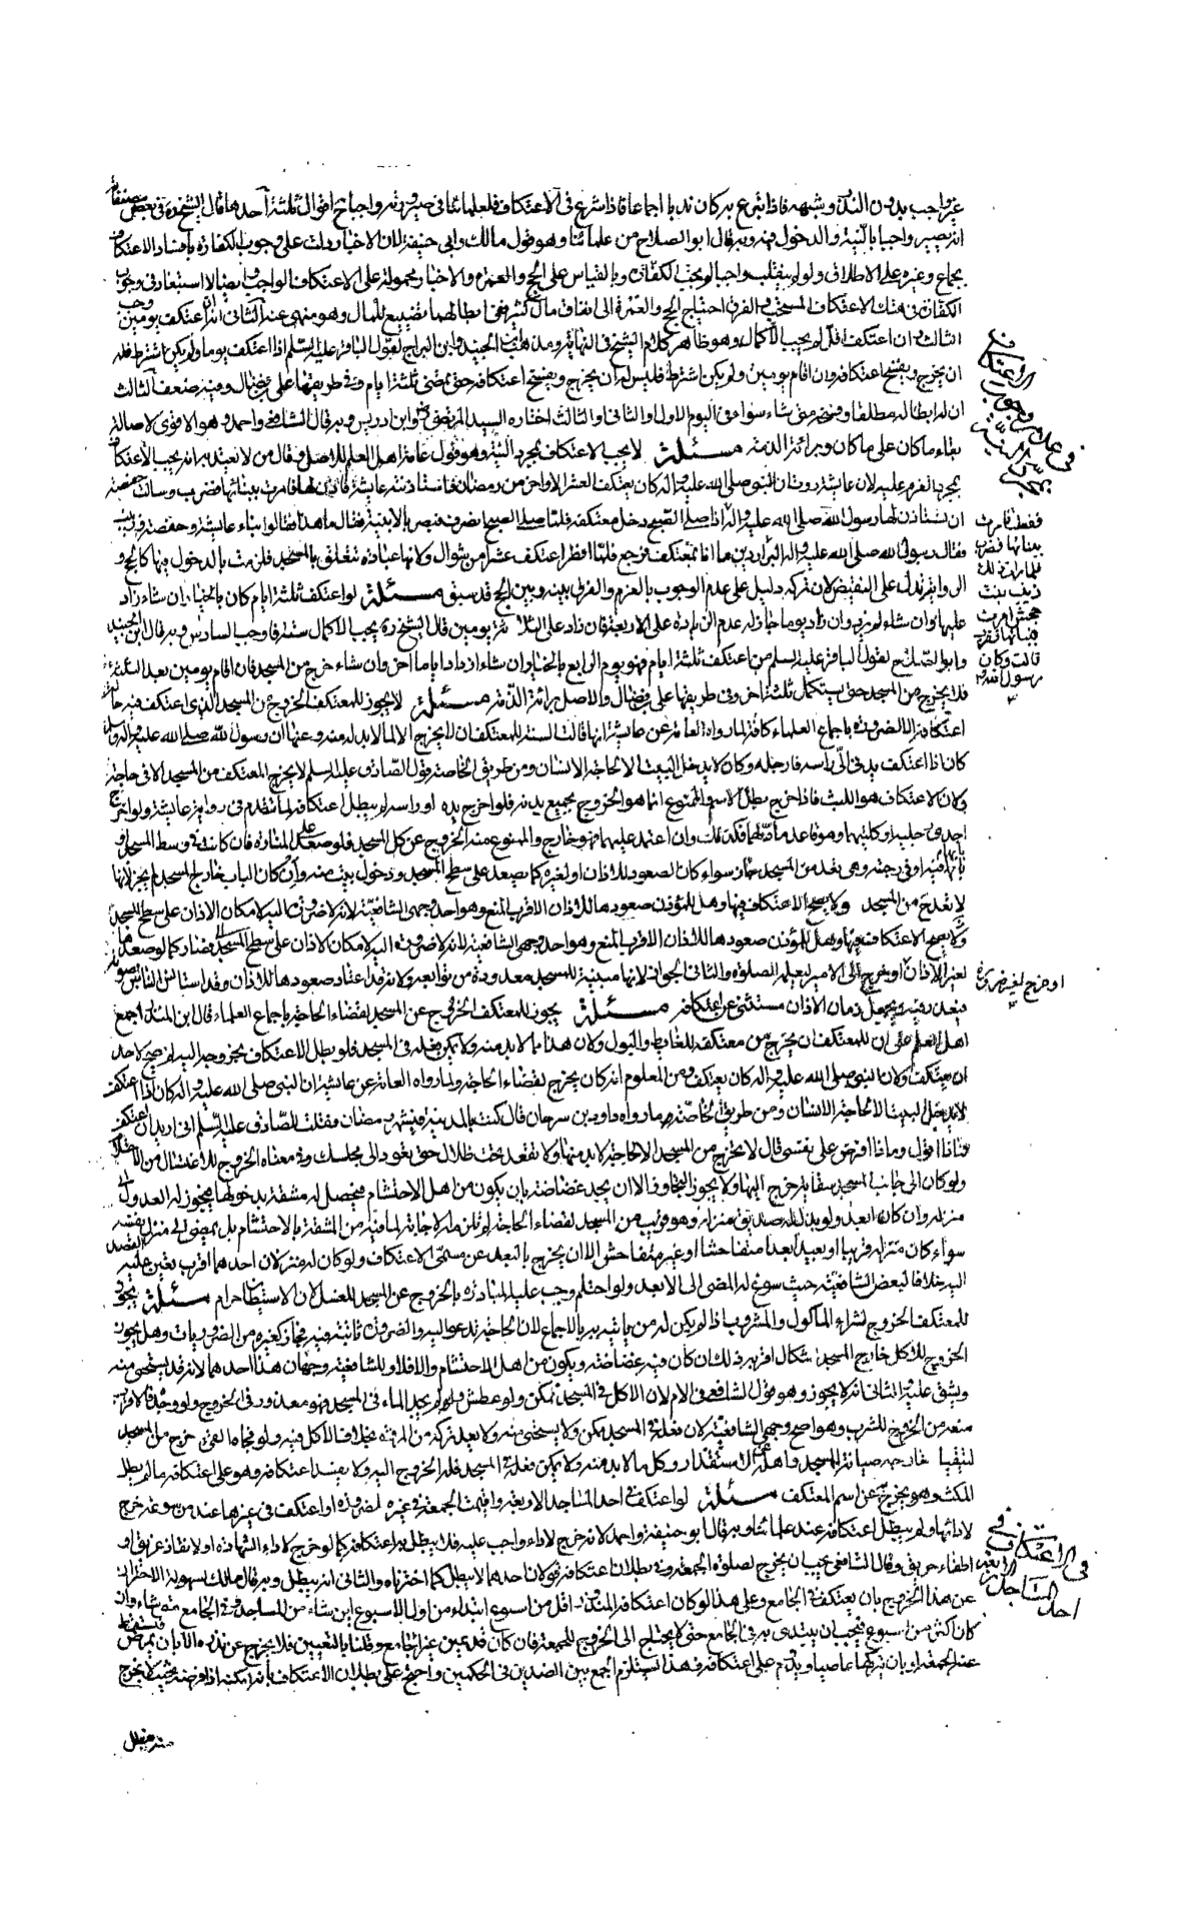 غير واجب بدون النذر وشبهه فاذا تبرع به كان ندبا اجماعا فاذا شرع في الاعتكاف فلعلمائنا في صيرورته واجبا ح اقوال ثلثة احدها قال الشيخ ره في بعض مصنفاته
انه يصير واجبا بالنية والدخول فيه وبه قال ابو الصلاح من علمائنا وهو قول مالك وابي حنيفة لان الاخبار دلت على وجوب الكفارة بافساد الاعتكاف
بجماع وغيره على الاطلاق ولو لم ينقلب واجبا لم يجب الكفارة وبالقياس على الحج والعمرة والاخبار محمولة على الاعتكاف الواجب وايضا لا استبعاد في وجوب
الكفارة في هتك الاعتكاف المستحب والفرق احتياج الحج والعمرة الى انفاق مال كثير ففي ابطالهما تضييع للمال وهو منهي عنه الثاني انه ان اعتكف يومين وجب
الثالث وان اعتكف اقل لم يجب الاكمال وهو ظاهر كلام الشيخ في النهاية ومذهب ابن الجنيد وابن البراج لقول الباقر عليه السلم اذا اعتكف يوما ولم يكن اشترط فله
ان يخرج ويفسخ اعتكافه وان اقام يومين ولم يكن اشترط فليس له ان يخرج ويفسخ اعتكافه حتى تمضي ثلثة ايام وفي طريقها علي بن فضال وفيه ضعف الثالث
ان له ابطاله مطلقا وفسخه متى شاء سواء في اليوم الاول او الثاني او الثالث اختاره السيد المرتضى رض وابن ادريس وبه قال الشافعي واحمد وهو الاقوى لاصالة
بقاء ما كان على ما كان وبراءة الذمة مسئلة لا يجب الاعتكاف بمجرد النية وهو قول عامة اهل العلم للاصل وقال من لا يعتد به انه يجب الاعتكاف
بمجرد العزم عليه لان عايشة روت ان النبي صلى الله عليه واله كان يعتكف العشر الاواخر من رمضان فاستاذنته عايشة فاذن لها فامرت ببنائها فضرب وسالت حفصة
ان تستاذن لها رسول الله صلى الله عليه واله
فقال رسول الله صلى الله عليه واله البر اردتن ما انا بمعتكف فرجع فلما افطر اعتكف عشرا من شوال ولانها عبادة تتعلق بالمسجد فلزمت بالدخول فيها كالحج و
الرواية تدل على النقيض لان تركه دليل على عدم الوجوب بالعزم والفرق بينه وبين الحج قد سبق مسئلة لو اعتكف ثلثة ايام كان بالخيار ان شاء زاد
عليها وان شاء لم يزد وان زاد يوما جاز له عدم الزيادة على الاربعة فان زاد على الثلاثة يومين قال الشيخ ره يجب الاكمال ستة فاوجب السادس وبه قال ابن الجنيد
وابو الصلاح لقول الباقر عليه السلم من اعتكف ثلثة ايام فهو يوم الرابع بالخيار ان شاء ازداد اياما اخر وان شاء خرج من المسجد فان اقام يومين بعد الثلثة
فلا يخرج من المسجد حتى يستكمل ثلثة اخر وفي طريقها علي بن فضال والاصل براءة الذمة مسئلة لا يجوز للمعتكف الخروج من المسجد الذي اعتكف فيه حالة
اعتكافه الا لضرورة باجماع العلماء كافة لما رواه العامة عن عايشة انها قالت السنة للمعتكف ان لا يخرج الا لما لا بد له منه وعنها ان رسول الله صلى الله عليه واله
كان اذا اعتكف يدني الي راسه فارجله وكان لا يدخل البيت الا لحاجة الانسان ومن طريق الخاصة قول الصادق عليه السلم لا يخرج المعتكف من المسجد الا في حاجة
ولان الاعتكاف هو اللبث فاذا خرج بطل الاسم والممنوع انما هو الخروج بجميع بدنه فلو اخرج يده او راسه لم يبطل اعتكافه لما تقدم في رواية عايشة ولو اخرج
احدى رجليه او كلتيهما وهو قاعد مادّ لهما فكذلك وان اعتمد عليهما فهو خارج والممنوع منه الخروج عن كل المسجد فلو صعد على المنارة فان كانت في وسط المسجد او
بابها فيه او في رحبته وهي تعد من المسجد جاز سواء كان الصعود للاذان او لغيره كما يصعد على سطح المسجد ودخول بيت منه وان كان الباب خارج المسجد لم يجز لانها
لا تعد ح من المسجد ولا يصح الاعتكاف فيها وهل للمؤذن صعودها للاذان الاقرب المنع وهو احد وجهي الشافعية لانه لا ضرورة اليه لامكان الاذان على سطح المسجد
ولا يصح الاعتكاف فيها وهل للمؤذن صعودها للاذان الاقرب المنع وهو احد وجهي الشافعية لانه لا ضرورة اليه لامكان الاذان على سطح المسجد فصار كما لو صعدها
لغير الاذان او خرج الى الامير ليعلمه الصلوة والثاني الجواز لانها مبنية للمسجد معدودة من توابعه ولانه قد اعتاد صعودها للاذان وقد استانس الناس بصوته
فيعذر فيه ويجعل زمان الاذان مستثنى عن اعتكافه مسئلة يجوز للمعتكف الخروج عن المسجد لقضاء الحاجة باجماع العلماء قال ابن المنذر اجمع
اهل العلم على ان للمعتكف ان يخرج من معتكفه للغايط والبول ولان هذا مما لا بد منه ولا يمكن فعله في المسجد فلو بطل الاعتكاف بخروجه اليه لم يصح لاحد
ان يعتكف ولان النبي صلى الله عليه واله كان يعتكف ومن المعلوم انه كان يخرج لقضاء الحاجة ولما رواه العامة عن عايشة ان النبي صلى الله عليه واله كان اذا اعتكف
لا يدخل البيت الا لحاجة الانسان ومن طريق الخاصة ما رواه داود بن سرحان قال كنت بالمدينة في شهر رمضان فقلت للصادق عليه السلم اني اريد ان اعتكف
فماذا اقول وماذا افرض على نفسي قال لا تخرج من المسجد الا لحاجة لا بد منها ولا تقعد تحت ظلال حتى تعود الى مجلسك وفي معناه الخروج للاغتسال من الاحتلام
ولو كان الى جانب المسجد سقاية خرج اليها ولا يجوز التجاوز الا ان يجد غضاضة بان يكون من اهل الاحتشام فيحصل له مشقة بدخولها فيجوز له العدول الى
منزله وان كان ابعد ولو بذل له صديق منزله وهو قريب من المسجد لقضاء الحاجة لم يلزمه الاجابة لما فيه من المشقة بالاحتشام بل يمضي الى منزل نفسه
سواء كان منزله قريبا او بعيدا بعدا متفاحشا او غير متفاحش الا ان يخرج بالبعد عن مسمى الاعتكاف ولو كان له منزلان احدهما اقرب تعين عليه القصد
اليه خلافا لبعض الشافعية حيث سوغ له المضي الى الابعد ولو احتلم وجب عليه المبادرة بالخروج عن المسجد للغسل لان الاستيطان حرام مسئلة يجوز
للمعتكف الخروج لشراء الماكول والمشروب اذا لم يكن له من ياتيه به بالاجماع لان الحاجة تدعو اليه والضرورة ثابتة فيه فجاز كغيره من الضروريات وهل يجوز
الخروج للاكل خارج المسجد اشكال اقربه ذلك ان كان فيه غضاضة ويكون من اهل الاحتشام والا فلا وللشافعية وجهان هذا احدهما لانه قد يستحيي منه
ويشق عليه والثاني انه لا يجوز وهو قول الشافعي في الام لان الاكل في المسجد ممكن ولو عطش ولم يجد الماء في المسجد فهو معذور في الخروج ولو وجده فالاقرب
منعه من الخروج للشرب وهو اصح وجهي الشافعية لان فعله في المسجد ممكن ولا يستحيى منه ولا يعد تركه من المروة بخلاف الاكل فيه ولو فجاه القيء خرج من المسجد
ليتقيا خارجه صيانة للمسجد واهله عن الاستقذار وكل ما لا بد منه ولا يمكن فعله في المسجد فله الخروج اليه ولا يفسد اعتكافه وهو على اعتكافه ما لم يطل
المكث ويخرج عن اسم المعتكف مسئلة لو اعتكف في احد المساجد الاربعة واقيمت الجمعة في غيره لضرورة او اعتكف في غيرها عند من سوغه خرج
لادائها ولم يبطل اعتكافه عند علمائنا وبه قال ابو حنيفة واحمد لانه خرج لاداء واجب عليه فلا يبطل به اعتكافه كما لو خرج لاداء الشهادة او لانقاذ غريق او
اطفاء حريق وقال الشافعي يجب ان يخرج لصلوة الجمعة وفي بطلان اعتكافه قولان احدهما لا يبطل كما اخترناه والثاني انه يبطل وبه قال مالك لسهولة الاحتراز
عن هذا الخروج بان يعتكف في الجامع وعلى هذا لو كان اعتكافه المنذور اقل من اسبوع ابتدا من اول الاسبوع اين شاء من المساجد وفي الجامع متى شاء وان
كان اكثر من اسبوع فيجب ان يبتدئ به في الجامع حتى لا يحتاج الى الخروج للجمعة فان كان قد عين غير الجامع وقلنا بالتعيين فلا يخرج عن نذره الا بان يمرض فتسقط
عنه الجمعة او بان يتركها عاصيا ويدوم على اعتكافه وهذا يستلزم الجمع بين الضدين في الحكمين واحتج على بطلان الاعتكاف بانه امكنه اداء فرضه بحيث لا يخرج
منه فبطل
في عدم وجوب الاعتكاف بمجرد النية
او خرج لغير ضرورة
في الاعتكاف في احد المساجد الاربعة